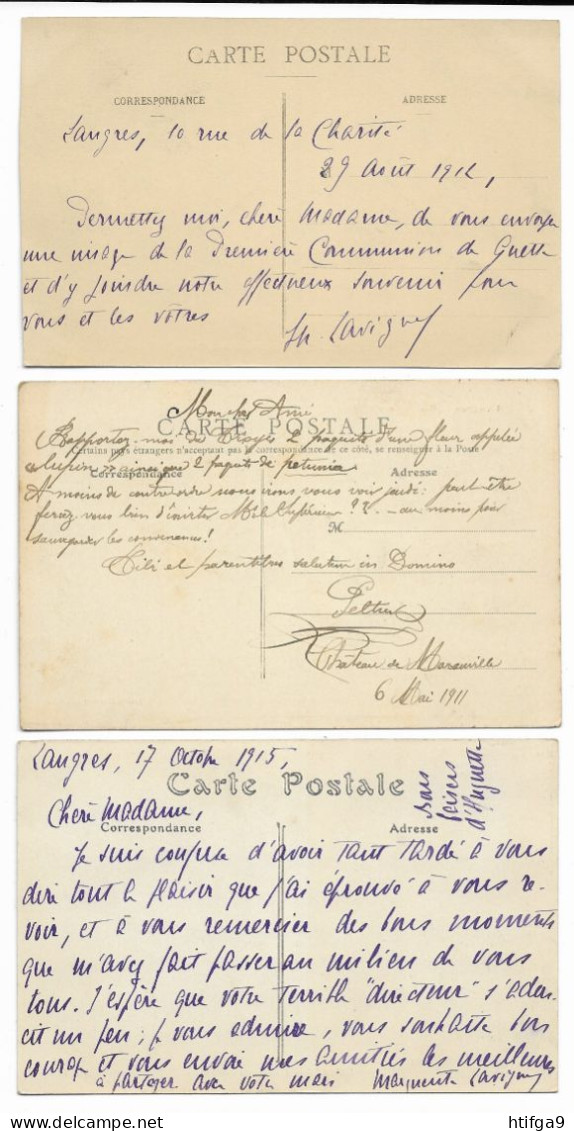 CARTE POSTALE
CORRESPONDANCE
ADRESSE
Langres, 10 rue de la Charité
29 août 1912,
Permettez moi, chère Madame, de vous envoyer
une image de la Première Communion de Guette
et d'y joindre notre affectueux souvenir pour
vous et les vôtres
Th. Lavigne
Mon cher Ami
CARTE POSTALE
Rapportez-moi de Troyes 2 paquets d'une fleur appelée
Certains pays étrangers n'acceptant pas la correspondance de ce côté, se renseigner à la Poste
« lupin » ainsi que 2 paquets de petunia
Correspondance
Adresse
A moins de contre ordre nous irons vous voir jeudi : peut-être
ferez vous bien d'inviter Mlle ?? - au moins pour
M
sauvegarder les convenances !
Titi et salutem in Domino
Château de
6 Mai 1911
Langres, 17 Octobre 1915,
Carte Postale
bons baisers d'Huguette
Chère Madame,
Correspondance
Adresse
Je suis confuse d'avoir tant tardé à vous
dire tout le plaisir que j'ai éprouvé à vous re-
voir, et à vous remercier des bons moments
que m'avez fait passer au milieu de vous
tous. J'espère que votre terrible "directeur" s'adou-
cit un peu ; je vous admire, vous souhaite bon
courage et vous envoie mes amitiés les meilleures
à partager avec votre mari Marguerite Lavigne
htifga9